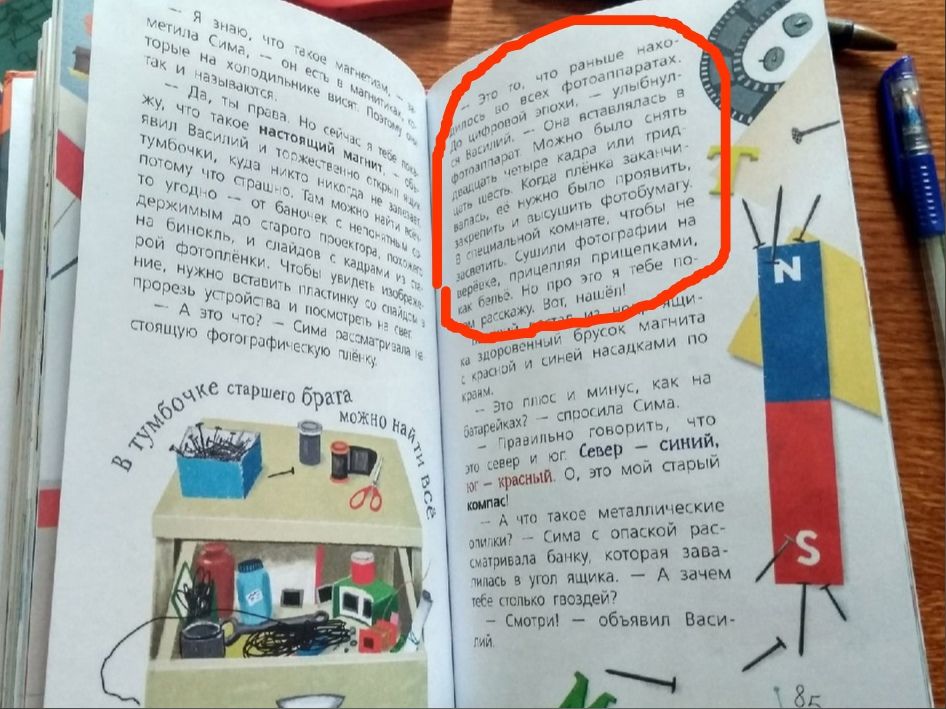 — Я знаю, что такое магнетизм, — за-
метила Сима, — он есть в магнитиках, ко-
торые на холодильнике висят. Поэтому они
так и называются.
— Да, ты права. Но сейчас я тебе пока-
жу, что такое настоящий магнит, — объ-
явил Василий и торжественно открыл ящик
тумбочки, куда никто никогда не залезает,
потому что страшно. Там можно найти всё,
что угодно — от баночек с непонятным со-
держимым до старого проектора, похожего
на бинокль, и слайдов с кадрами из ста-
рой фотоплёнки. Чтобы увидеть изображе-
ние, нужно вставить пластинку со слайдом в
прорезь устройства и посмотреть на свет.
— А это что? — Сима рассматривала на-
стоящую фотографическую плёнку.
В тумбочке старшего брата
можно найти всё
— Это то, что раньше нахо-
дилось во всех фотоаппаратах.
До цифровой эпохи, — улыбнул-
ся Василий. — Она вставлялась в
фотоаппарат. Можно было снять
двадцать четыре кадра или трид-
цать шесть. Когда плёнка заканчи-
валась, её нужно было проявить,
закрепить и высушить фотобумагу.
В специальной комнате, чтобы не
засветить. Сушили фотографии на
верёвке, прицепляя прищепками,
как бельё. Но про это я тебе по-
том расскажу. Вот, нашёл!
из ящи-
ка здоровенный брусок магнита
с красной и синей насадками по
краям.
— Это плюс и минус, как на
батарейках? — спросила Сима.
— Правильно говорить, что
это север и юг. Север — синий,
юг — красный. О, это мой старый
компас!
— А что такое металлические
опилки? — Сима с опаской рас-
сматривала банку, которая зава-
лилась в угол ящика. — А зачем
тебе столько гвоздей?
— Смотри! — объявил Васи-
лий.
T
N
S
M
85